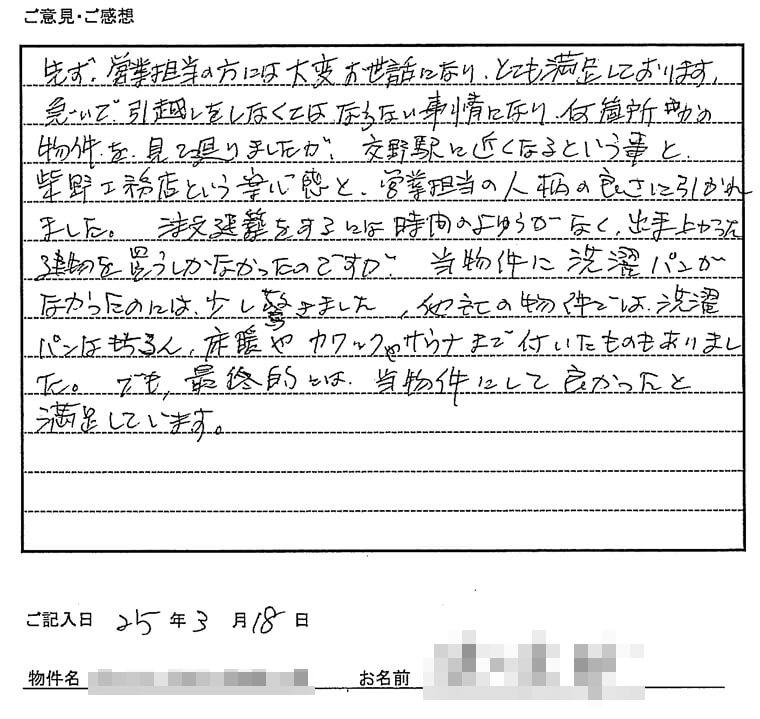 ご意見・ご感想
先ず、営業担当の方には大変お世話になり、とても満足しております。
急いで引越しをしなくてはならない事情になり、何箇所かの
物件を、見て廻りましたが、交野駅に近くなるという事と、
柴野工務店という安心感と、営業担当の人柄の良さに引かれ
ました。注文建築をするには時間のよゆうがなく、出来上がった
建物を買うしかなかったのですが、当物件に洗濯パンが
なかったのには、少し驚きました、他社の物件では、洗濯
パンはもちろん、床暖やカワックやサウナまで付いたものもありまし
た。でも、最終的には、当物件にして良かったと
満足しています。
ご記入日 25年3月18日
物件名 お名前